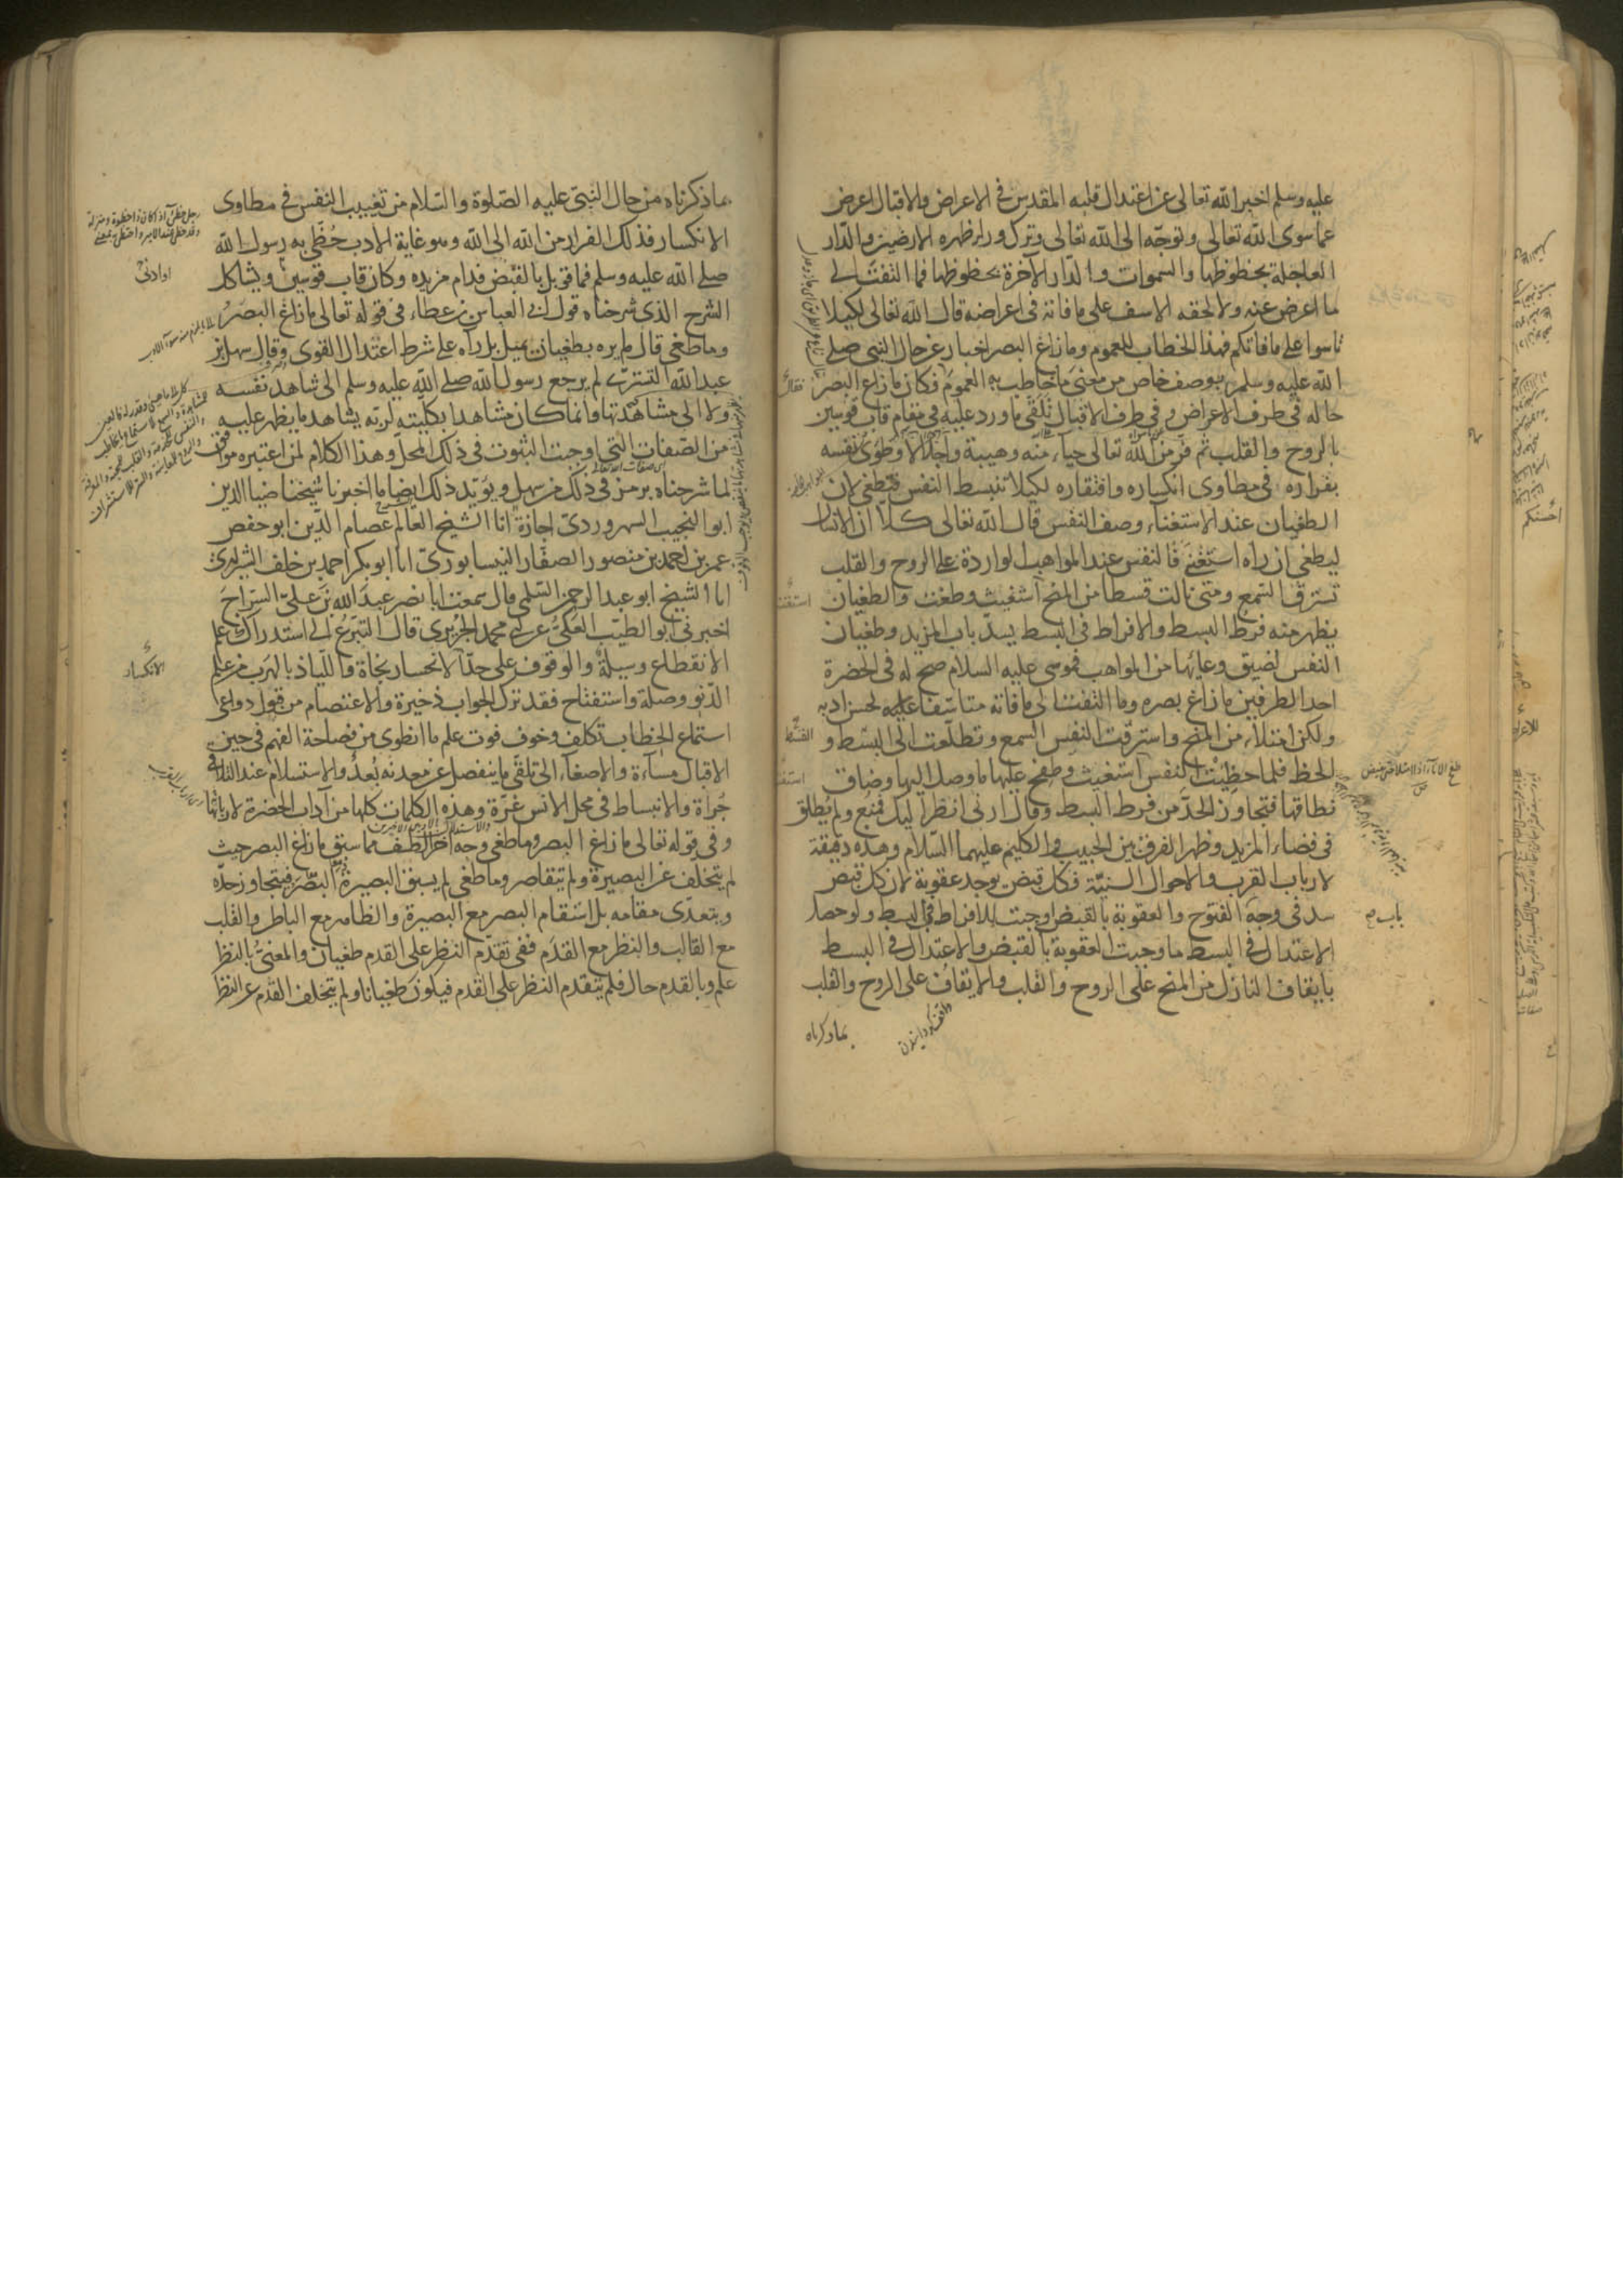 عليه وسلم اخبر الله تعالى عن اعتدال قلبه المقدس في الاعراض والاقبال اعرض
عما سوى الله تعالى وتوجه الى الله تعالى وترك وراء ظهره الارضين والدار
العاجلة بحظوظها والسموات والدار الآخرة بحظوظها فما التفت الى
ما اعرض عنه ولا لحقه الاسف على ما فاته في اعراضه قال الله تعالى لكيلا
تاسوا على ما فاتكم فهذا الخطاب للعموم وما زاغ البصر اخبار عن حال النبي صلى
الله عليه وسلم بوصف خاص من معنى ما خاطب به العموم فكان ما زاغ البصر
حاله في طرف الاعراض وفي طرف الاقبال تلقى ما ورد عليه في مقام قاب قوسين
بالروح والقلب ثم فر من الله تعالى حياء منه وهيبة واجلالا وطوى نفسه
بفراره في مطاوى انكساره وافتقاره لكيلا تنبسط النفس فتطغى لان
الطغيان عند الاستغناء وصف النفس قال الله تعالى كلا ان الانسان
ليطغى ان رآه استغنى فالنفس عند المواهب الواردة على الروح والقلب
تسترق السمع ومتى نالت قسطا من المنح استغنت وطغت والطغيان
يظهر منه فرط البسط والافراط في البسط يسد باب المزيد وطغيان
النفس لضيق وعائها من المواهب فموسى عليه السلام صح له في الحضرة
احد الطرفين ما زاغ بصره وما التفت الى ما فاته متاسفا عليه لحسن ادبه
ولكن امتلأ من المنح واسترقت النفس السمع وتطلعت الى البسط و
الحظ فلما حظيت النفس استغنت وطفح عليها ما وصل اليها وضاق
نطاقها فتجاوز الحد من فرط البسط وقال ارنى انظر اليك فمنع ولم يطلق
في فضاء المزيد وظهر الفرق بين الحبيب والكليم عليهما السلام وهذه دقيقة
لارباب القرب والاحوال السنية فكل قبض يوجد عقوبة لان كل قبض
سد في وجه الفتوح والعقوبة بالقبض اوجبت للافراط في البسط ولو حصل
الاعتدال في البسط ما وجبت العقوبة بالقبض والاعتدال في البسط
بايقاف النازل من المنح على الروح والقلب والايقاف على الروح والقلب
بما ذكرناه
بما ذكرناه من حال النبي عليه الصلوة والسلام من تغييب النفس في مطاوى
الانكسار فذلك الفرار من الله الى الله وهو غاية الادب حظي به رسول الله
صلى الله عليه وسلم فما قوبل بالقبض فدام مزيده وكان قاب قوسين ويشاكل
او ادنى
الشرح الذي شرحناه قول ابي العباس بن عطاء في قوله تعالى ما زاغ البصر
وما طغى قال لم يره بطغيان يميل بل رآه على شرط اعتدال القوى وقال سهل بن
عبد الله التستري لم يرجع رسول الله صلى الله عليه وسلم الى شاهد نفسه
ولا الى مشاهدتها وانما كان مشاهدا بكليته لربه يشاهد ما يظهر عليه
من الصفات التي اوجبت الثبوت في ذلك المحل وهذا الكلام لمن اعتبره موافق
لما شرحناه برمز في ذلك من سهل ويؤيد ذلك ايضا ما اخبرنا شيخنا ضيا الدين
ابو النجيب السهروردي اجازة انا الشيخ العالم عصام الدين ابو حفص
عمر بن احمد بن منصور الصفار النيسابوري انا ابو بكر احمد بن خلف الشيرازي
انا الشيخ ابو عبد الرحمن السلمي قال سمعت ابا نصر عبد الله بن علي السراج
اخبرني ابو الطيب العكي عن ابي محمد الجريري قال التسرع الى استدراك علم
الانقطاع وسيلة والوقوف على حد الانحسار نجاة واللياذ بالهرب من علم
الدنو وصلة واستفتاح فقد ترك الجواب ذخيرة والاعتصام من قبول دواعي
استماع الخطاب تكلف وخوف فوت علم ما انطوى من فصاحة الفهم في حين
الاقبال مساءة والاصغاء الى تلقي ما ينفصل عن معدنه بعد والاستسلام عند التلاقي
جراة والانبساط في محل الانس غرة وهذه الكلمات كلها من آداب الحضرة لاربابها
وفي قوله تعالى ما زاغ البصر وما طغى وجه آخر الطف مما سبق ما زاغ البصر حيث
لم يتخلف عن البصيرة ولم يتقاصر وما طغى لم يسبق البصيرة البصر فيتجاوز حده
ويتعدى مقامه بل استقام البصر مع البصيرة والظاهر مع الباطن والقلب
مع القالب والنظر مع القدم ففي تقدم النظر على القدم طغيان والمعني بالنظر
علم وبالقدم حال فلم يتقدم النظر على القدم فيكون طغيانا ولم يتخلف القدم عن النظر
الانكسار